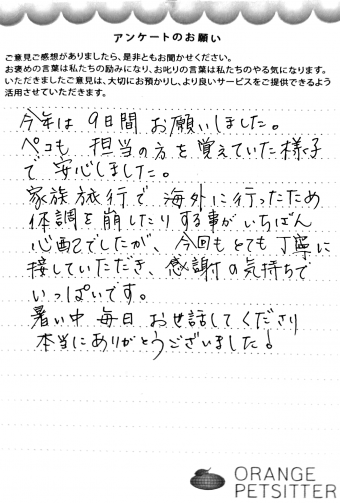 アンケートのお願い
ご意見ご感想がありましたら、是非ともお聞かせください。
お褒めの言葉は私たちの励みになり、お叱りの言葉は私たちのやる気になります。
いただきましたご意見は、大切にお預かりし、より良いサービスをご提供できるよう
活用させていただきます。
今年は 9日間 お願いしました。
ペコも 担当の方を覚えていた様子
で 安心しました。
家族旅行で 海外に行ったため
体調を崩したりする事がいちばん
心配でしたが、今回もとても丁寧に
接していただき、感謝の気持ちで
いっぱいです。
暑い中 毎日 お世話してくださり
本当にありがとうございました!
ORANGE
PETSITTER